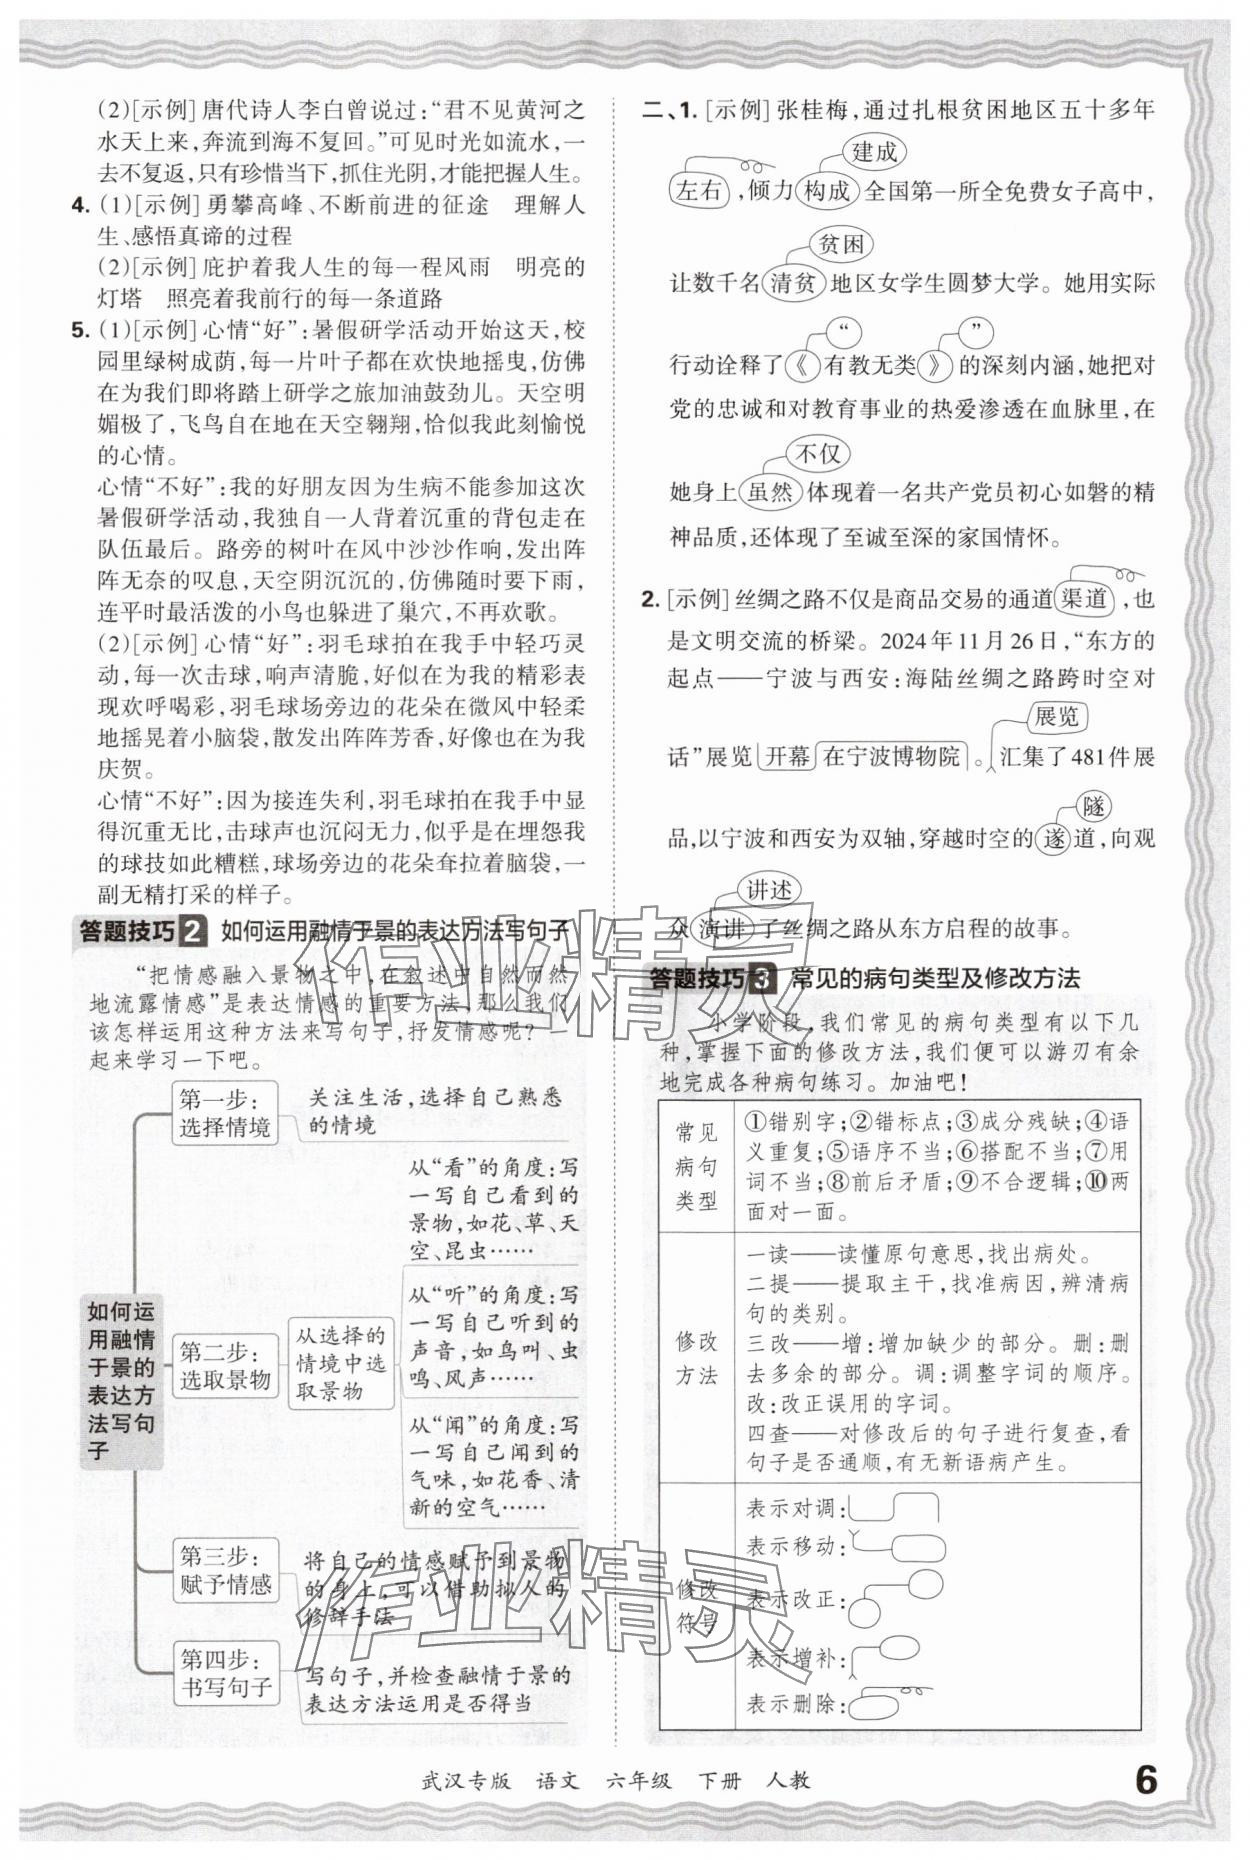 (2)[示例]唐代诗人李白曾说过:“君不见黄河之
水天上来,奔流到海不复回。”可见时光如流水,一
去不复返,只有珍惜当下,抓住光阴,才能把握人生。
4. (1)[示例]勇攀高峰、不断前进的征途　理解人
生、感悟真谛的过程
(2)[示例]庇护着我人生的每一程风雨　明亮的
灯塔　照亮着我前行的每一条道路
5. (1)[示例]心情“好”:暑假研学活动开始这天,校
园里绿树成荫,每一片叶子都在欢快地摇曳,仿佛
在为我们即将踏上研学之旅加油鼓劲儿。天空明
媚极了,飞鸟自在地在天空翱翔,恰似我此刻愉悦
的心情。
心情“不好”:我的好朋友因为生病不能参加这次
暑假研学活动,我独自一人背着沉重的背包走在
队伍最后。路旁的树叶在风中沙沙作响,发出阵
阵无奈的叹息,天空阴沉沉的,仿佛随时要下雨,
连平时最活泼的小鸟也躲进了巢穴,不再欢歌。
(2)[示例]心情“好”:羽毛球拍在我手中轻巧灵
动,每一次击球,响声清脆,好似在为我的精彩表
现欢呼喝彩,羽毛球场旁边的花朵在微风中轻柔
地摇晃着小脑袋,散发出阵阵芳香,好像也在为我
庆贺。
心情“不好”:因为接连失利,羽毛球拍在我手中显
得沉重无比,击球声也沉闷无力,似乎是在埋怨我
的球技如此糟糕,球场旁边的花朵耷拉着脑袋,一
副无精打采的样子。
答题技巧2 如何运用融情于景的表达方法写句子
“把情感融入景物之中,在叙述中自然而然
地流露情感”是表达情感的重要方法,那么我们
该怎样运用这种方法来写句子,抒发情感呢?
起来学习一下吧。
如何运
用融情
于景的
表达方
法写句
子
第一步:
选择情境
关注生活,选择自己熟悉
的情境
第二步:
选取景物
从选择的
情境中选
取景物
从“看”的角度:写
一写自己看到的
景物,如花、草、天
空、昆虫……
从“听”的角度:写
一写自己听到的
声音,如鸟叫、虫
鸣、风声……
从“闻”的角度:写
一写自己闻到的
气味,如花香、清
新的空气……
第三步:
赋予情感
将自己的情感赋予到景物
的身上,可以借助拟人的
修辞手法
第四步:
书写句子
写句子,并检查融情于景的
表达方法运用是否得当
二、1. [示例]张桂梅,通过扎根贫困地区五十多年
建成
左右,倾力构成全国第一所全免费女子高中,
贫困
让数千名清贫地区女学生圆梦大学。她用实际
“ ”
行动诠释了《有教无类》的深刻内涵,她把对
党的忠诚和对教育事业的热爱渗透在血脉里,在
不仅
她身上虽然体现着一名共产党员初心如磐的精
神品质,还体现了至诚至深的家国情怀。
2. [示例]丝绸之路不仅是商品交易的通道渠道,也
是文明交流的桥梁。2024年11月26日,“东方的
起点——宁波与西安:海陆丝绸之路跨时空对
展览
话”展览开幕在宁波博物院。汇集了481件展
隧
品,以宁波和西安为双轴,穿越时空的遂道,向观
讲述
众演讲了丝绸之路从东方启程的故事。
答题技巧3 常见的病句类型及修改方法
小学阶段,我们常见的病句类型有以下几
种,掌握下面的修改方法,我们便可以游刃有余
地完成各种病句练习。加油吧!
常见
病句
类型
①错别字;②错标点;③成分残缺;④语
义重复;⑤语序不当;⑥搭配不当;⑦用
词不当;⑧前后矛盾;⑨不合逻辑;⑩两
面对一面。
修改
方法
一读——读懂原句意思,找出病处。
二提——提取主干,找准病因,辨清病
句的类别。
三改——增:增加缺少的部分。删:删
去多余的部分。调:调整字词的顺序。
改:改正误用的字词。
四查——对修改后的句子进行复查,看
句子是否通顺,有无新语病产生。
修改
符号
表示对调:
表示移动:
表示改正:
表示增补:
表示删除:
作业精灵
作业精灵
武汉专版　语文　六年级　下册　人教
6